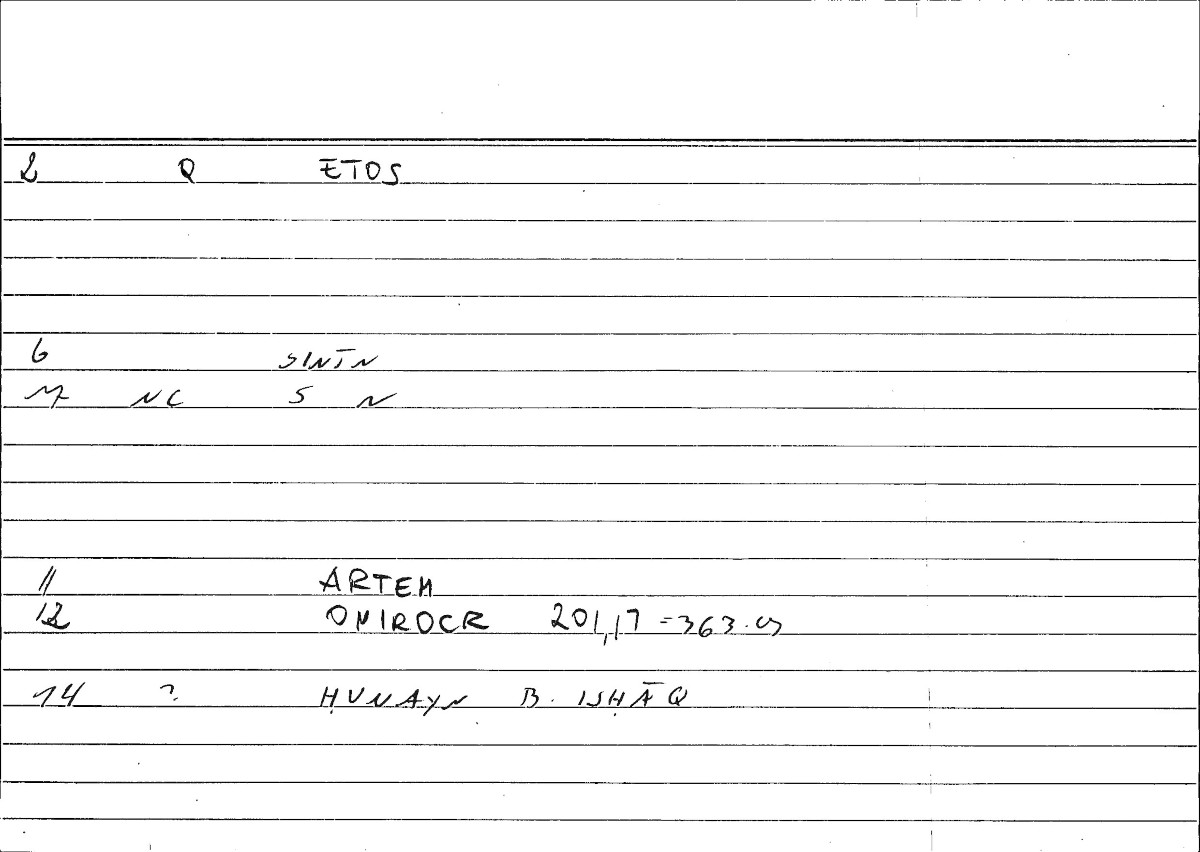 2 Q ETOS
6 SINĪN
7 NC S N
11 ARTEM
12 ONIROCR 201,17 = 363.
14 ? ḤUNAYN B. ISḤĀQ